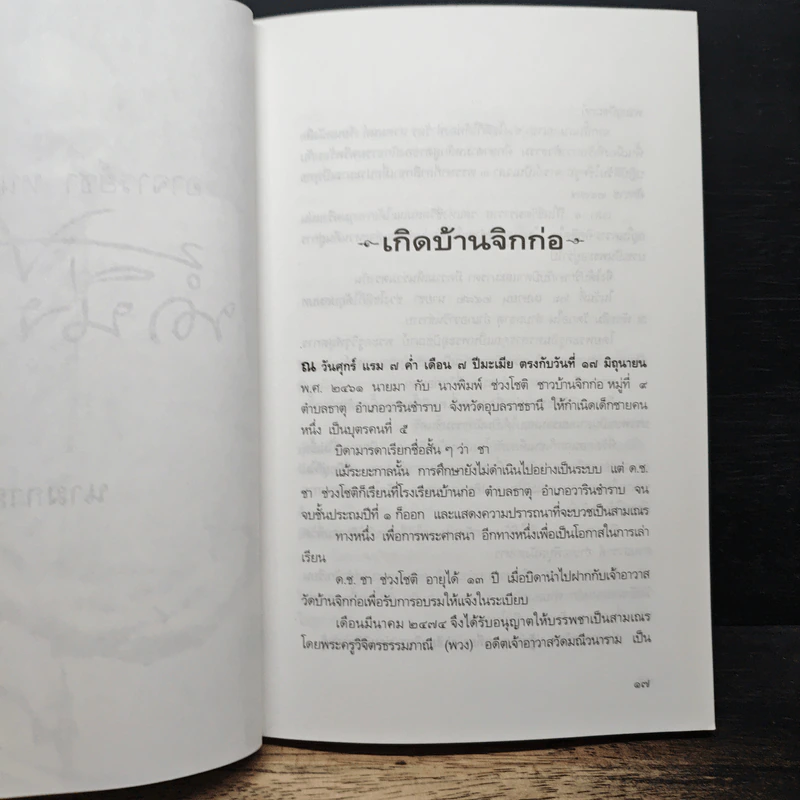 เกิดบ้านจิกก่อ
ณ วันศุกร์ แรม ๗ ค่ำ เดือน ๗ ปีมะเมีย ตรงกับวันที่ ๑๗ มิถุนายน
พ.ศ. ๒๔๖๑ นายมา กับ นางพิมพ์ ช่วงโชติ ชาวบ้านจิกก่อ หมู่ที่ ๙
ตำบลธาตุ อำเภอวารินชำราบ จังหวัดอุบลราชธานี ให้กำเนิดเด็กชายคน
หนึ่ง เป็นบุตรคนที่ ๕
บิดามารดาเรียกชื่อสั้น ๆ ว่า ชา
แม้ระยะกาลนั้น การศึกษายังไม่ดำเนินไปอย่างเป็นระบบ แต่ ด.ช.
ชา ช่วงโชติก็เรียนที่โรงเรียนบ้านก่อ ตำบลธาตุ อำเภอวารินชำราบ จน
จบชั้นประถมปีที่ ๑ ก็ออก และแสดงความปรารถนาที่จะบวชเป็นสามเณร
ทางหนึ่ง เพื่อการพระศาสนา อีกทางหนึ่งเพื่อเป็นโอกาสในการเล่า
เรียน
ด.ช. ชา ช่วงโชติ อายุได้ ๑๓ ปี เมื่อบิดานำไปฝากกับเจ้าอาวาส
วัดบ้านจิกก่อเพื่อรับการอบรมให้แจ้งในระเบียบ
เดือนมีนาคม ๒๔๗๔ จึงได้รับอนุญาตให้บรรพชาเป็นสามเณร
โดยพระครูวิจิตรธรรมภาณี (พวง) อดีตเจ้าอาวาสวัดมณีวนาราม เป็น
๑๗